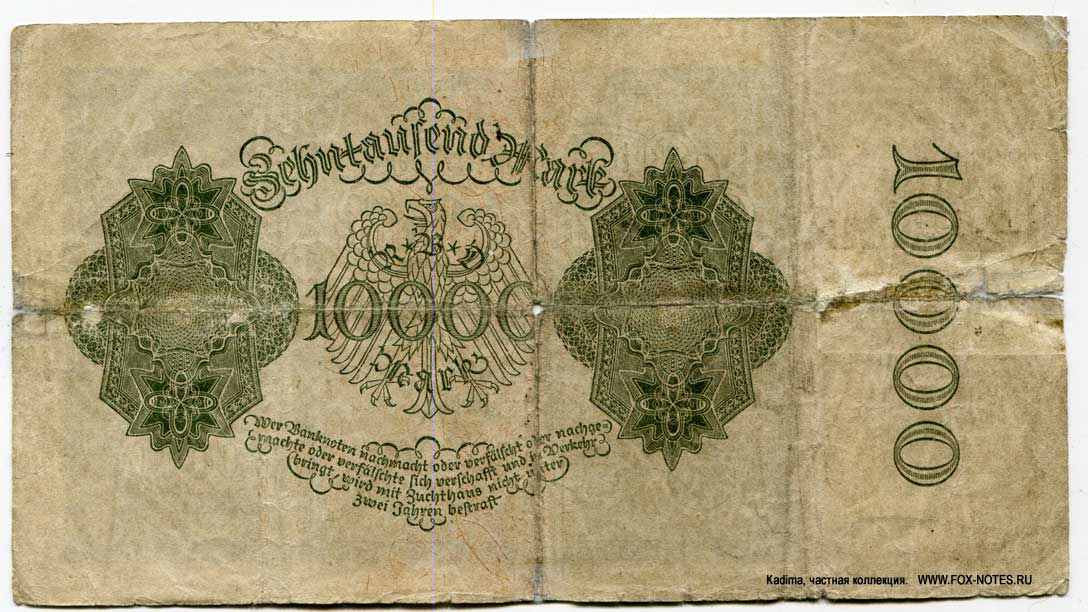 Zehntausend Mark
R * B * D
10000
Mark
Wer Banknoten nachmacht oder verfälscht oder nachge-
machte oder verfälschte sich verschafft und in Verkehr
bringt, wird mit Zuchthaus nicht unter
zwei Jahren bestraft
10000
Kadima, частная коллекция. WWW.FOX-NOTES.RU